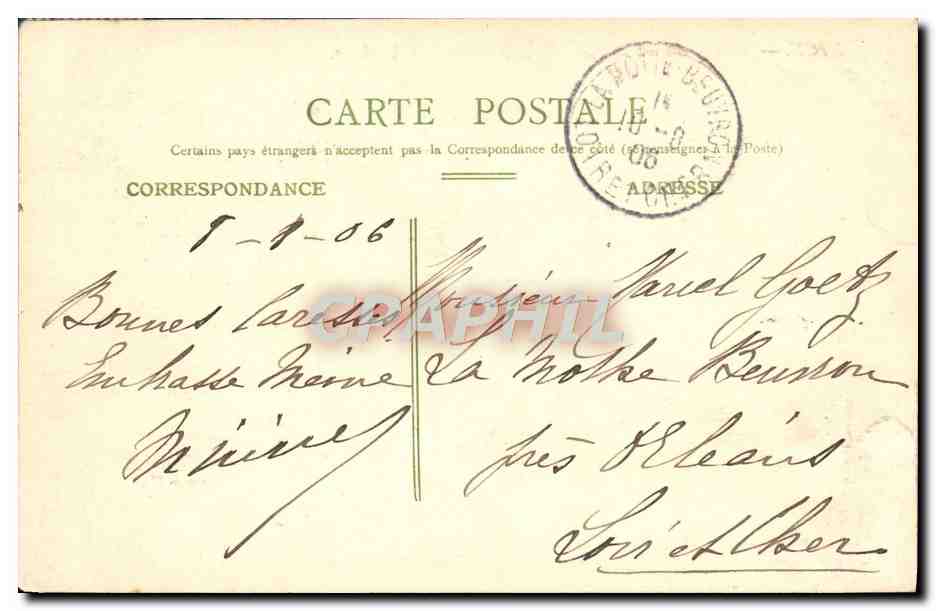 CARTE POSTALE
Certains pays étrangers n'acceptent pas la Correspondance de ce côté (se renseigner à la Poste)
CORRESPONDANCE
ADRESSE
LOIR ET CHER
8-06
Bonnes Caresses
Embrasse
Monsieur Marcel Goetz
La Mothe Beuvron
près d'Orléans
Loir et Cher
CPAPHIL